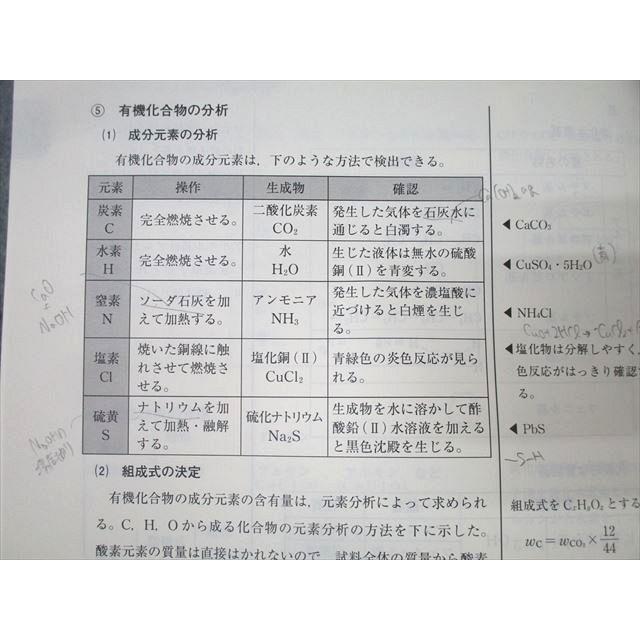 ⑤ 有機化合物の分析
(1) 成分元素の分析
有機化合物の成分元素は，下のような方法で検出できる。
元素 操作 生成物 確認
炭素
C
完全燃焼させる。
二酸化炭素
CO₂
発生した気体を石灰水に
通じると白濁する。
水素
H
完全燃焼させる。
水
H₂O
生じた液体は無水の硫酸
銅(Ⅱ)を青変する。
窒素
N
ソーダ石灰を加
えて加熱する。
アンモニア
NH₃
発生した気体を濃塩酸に
近づけると白煙を生じ
る。
塩素
Cl
焼いた銅線に触
れさせて燃焼さ
せる。
塩化銅(Ⅱ)
CuCl₂
青緑色の炎色反応が見ら
れる。
硫黄
S
ナトリウムを加
えて加熱・融解
する。
硫化ナトリウム
Na₂S
生成物を水に溶かして酢
酸鉛(Ⅱ)水溶液を加える
と黒色沈殿を生じる。
(2) 組成式の決定
有機化合物の成分元素の含有量は，元素分析によって求められ
る。C，H，Oから成る化合物の元素分析の方法を下に示した。
酸素元素の質量は直接はかれないので，試料全体の質量から酸素
◀ CaCO₃
◀ CuSO₄・5H₂O
(青)
◀ NH₄Cl
◀ 塩化物は分解しやすく，
色反応がはっきり確認
る。
◀ PbS
-S-H
組成式をCₓHᵧO_zとする
w_C = w_CO₂ × 12/44
CaO
+
NaOH